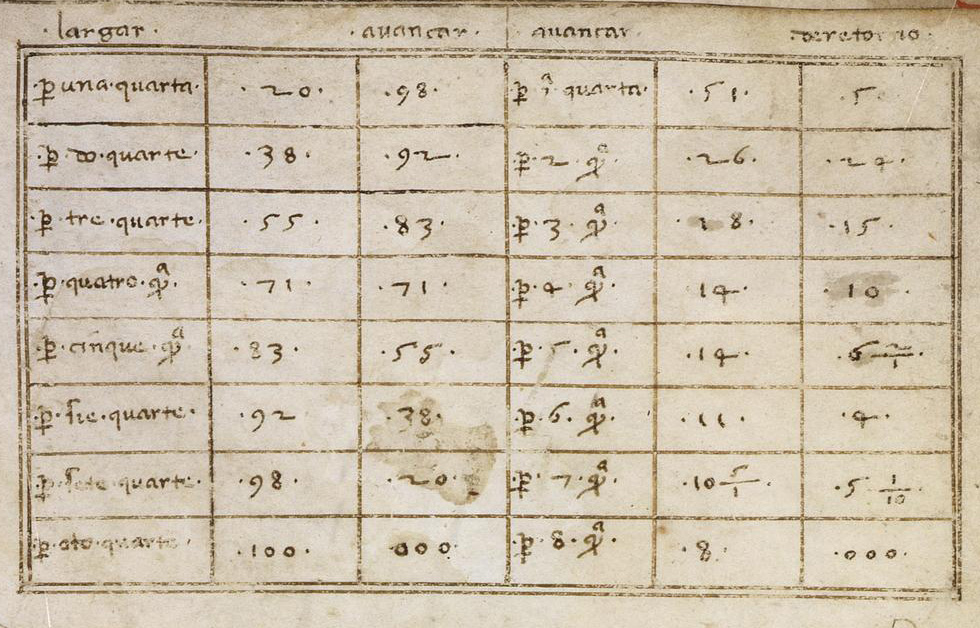 ·largar· ·auancar· auancar· de retorno·
·ꝑ una·quarta· ·20· ·98· ꝑ·ī·quarta· ·51· ·5
·ꝑ·do·quarte· ·38· ·92· ·ꝑ·2·qᵃ· ·26· ·24·
·ꝑ·tre·quarte· ·55· ·83· ꝑ·3·qᵃ· ·18· ·15·
·ꝑ·quatro·qᵃ· ·71· ·71· ꝑ·4·qᵃ· 14· 10·
·ꝑ·cinque·qᵃ· ·83· ·55· ·ꝑ·5·qᵃ· ·14· ·6 2/1·
·ꝑ·sie·quarte· ·92 ·38· ꝑ·6·qᵃ· ·11· ·4·
·ꝑ·sete·quarte· ·98· ·20· ꝑ·7·qᵃ· ·10 5/1· ·5 1/10·
·ꝑ·oto·quarte· ·100· ·000· ꝑ·8·qᵃ· ·8· ·000·